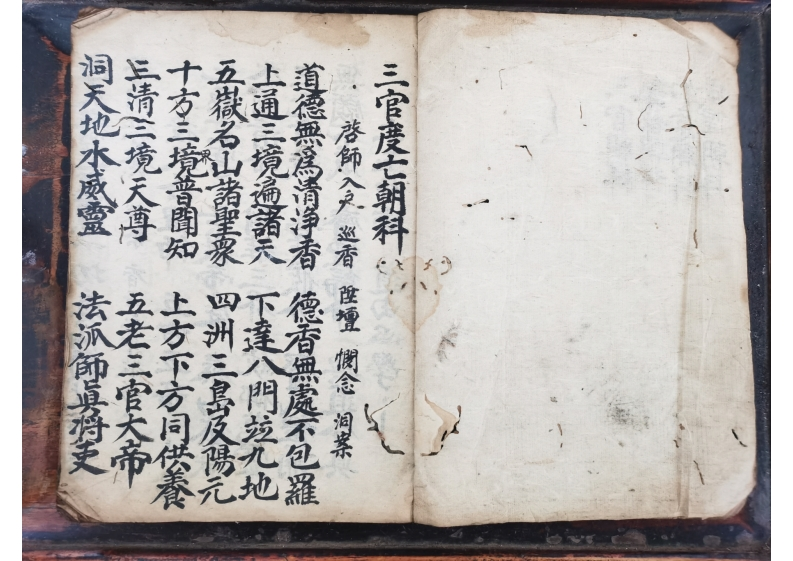 三官度亡朝科
啓師 入户 巡香 陞壇 憫念 洞案
道德無為清淨香 德香無處不包羅
上通三境遍諸天 下達八門竝九地
五嶽名山諸聖衆 四洲三島及陽元
十方三境界普聞知 上方下方同供養
三清三境天尊 五老三官大帝
洞天地水威靈 法派師眞將吏